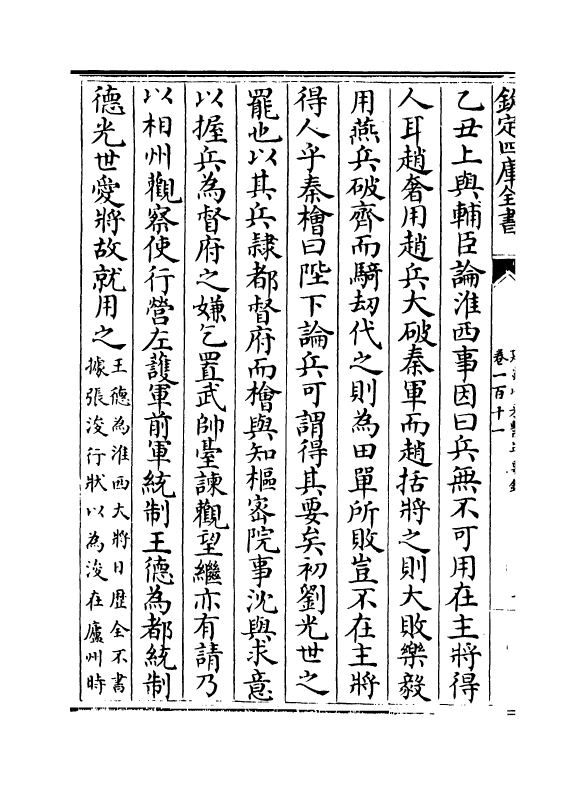 欽定四庫全書
卷一百十一
乙丑上與輔臣論淮西事因曰兵無不可用在主將得
人耳趙奢用趙兵大破秦軍而趙括將之則大敗樂毅
用燕兵破齊而騎刼代之則為田單所敗豈不在主將
得人乎秦檜曰陛下論兵可謂得其要矣初劉光世之
罷也以其兵隷都督府而檜與知樞密院事沈與求意
以握兵為督府之嫌乞置武帥臺諫觀望繼亦有請乃
以相州觀察使行營左護軍前軍統制王德為都統制
德光世愛將故就用之
王德為淮西大將日歴全不書
據張浚行狀以為浚在廬州時